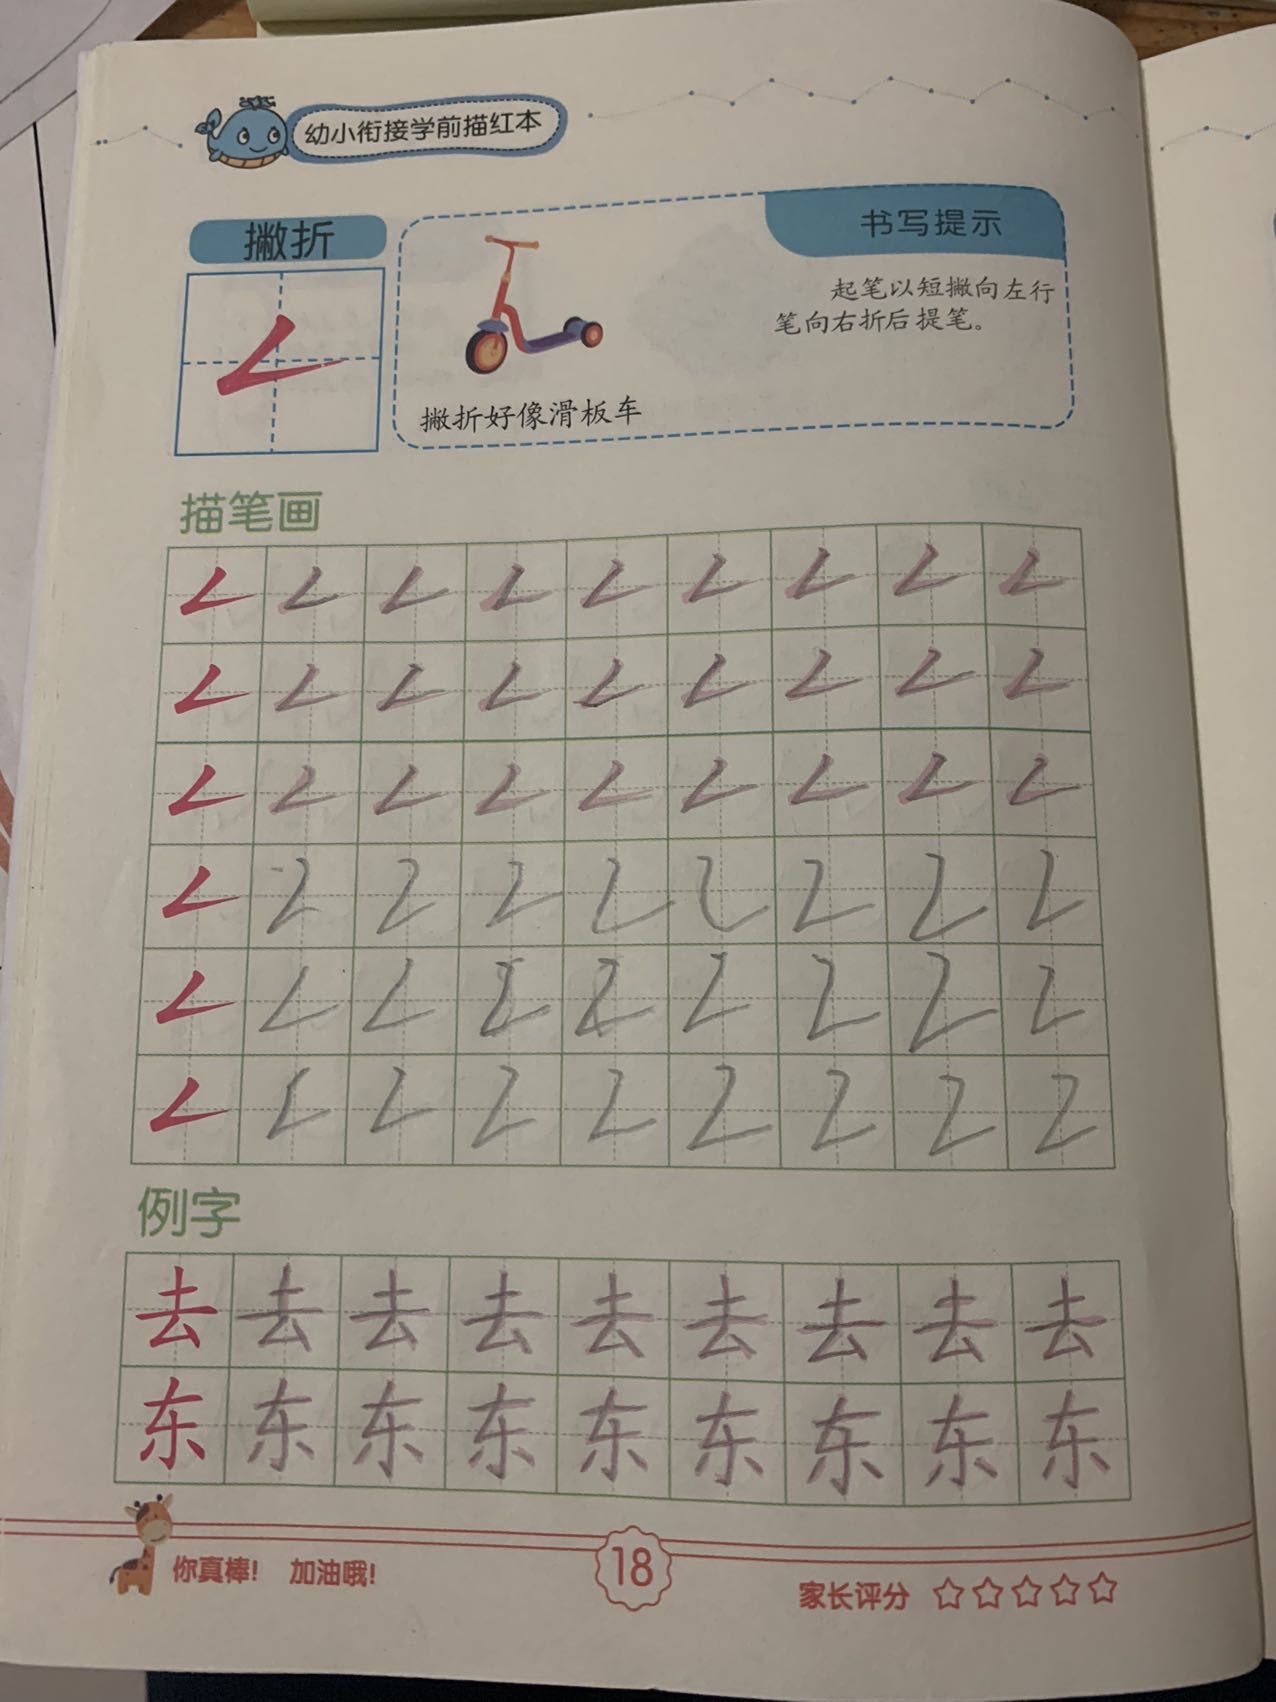 幼小衔接学前描红本
撇折
书写提示
起笔以短撇向左行
笔向右折后提笔。
撇折好像滑板车
描笔画
𠃋 𠃋 𠃋 𠃋 𠃋 𠃋 𠃋 𠃋 𠃋
𠃋 𠃋 𠃋 𠃋 𠃋 𠃋 𠃋 𠃋 𠃋
𠃋 𠃋 𠃋 𠃋 𠃋 𠃋 𠃋 𠃋 𠃋
𠃋 𠃋 𠃋 𠃋 𠃋 𠃋 𠃋 𠃋 𠃋
𠃋 𠃋 𠃋 𠃋 𠃋 𠃋 𠃋 𠃋 𠃋
𠃋 𠃋 𠃋 𠃋 𠃋 𠃋 𠃋 𠃋 𠃋
例字
去 去 去 去 去 去 去 去 去
东 东 东 东 东 东 东 东 东
你真棒! 加油哦!
18
家长评分 ☆☆☆☆☆